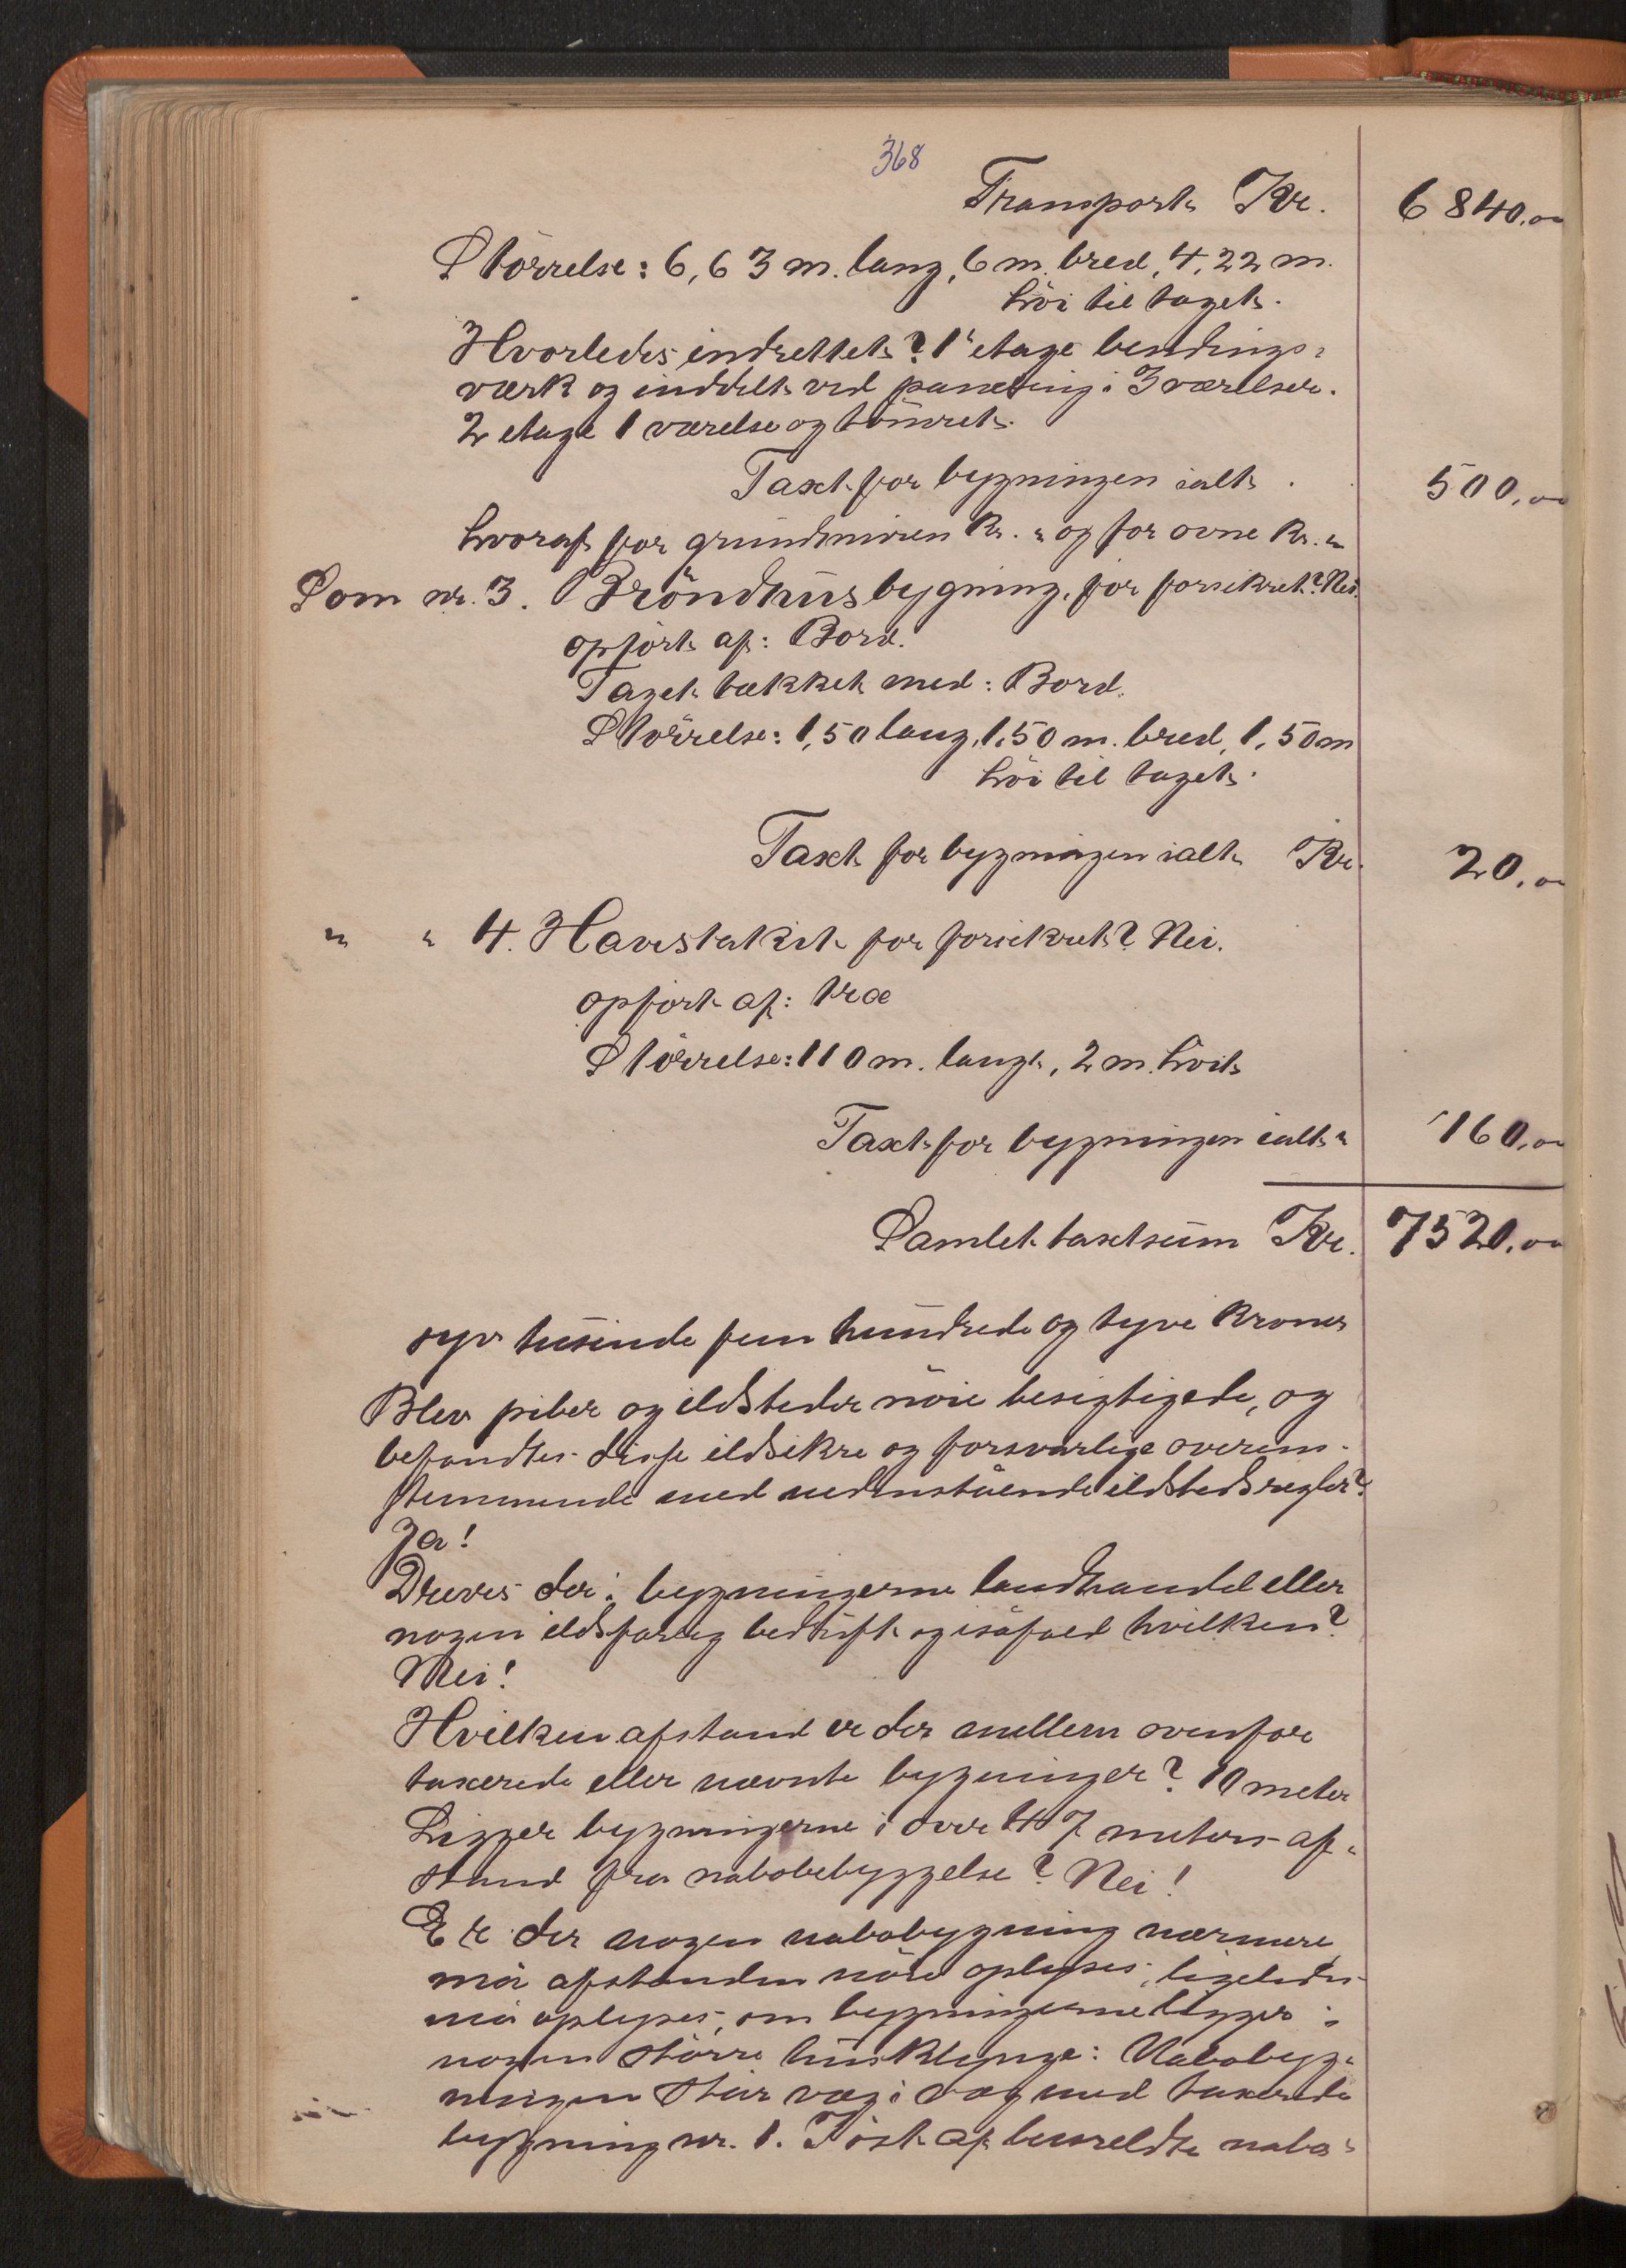 368
Transport Kr. 6 840.00
Större​lse: 6,63 m. lang, 6 m. bred, 4,22 m.
höi til taget.
Hvorledes indrettet? 1' etage bindings-
værk og inddelt ved paneling i 3 værelser.
2 etage 1 værelse og tömret.
Taxt for bygningen ialt . . 500,00
hvoraf for grundmuren Kr. " og for ovne Kr. "
Som nr. 3. Bröndhusbygning, för forsikret? Nei.
opfört af: Bord.
Taget tækket med: Bord.
Störrelse: 1,50 lang, 1,50 m. bred, 1,50 m
höi til taget.
Taxt for bygningen ialt Kr. 20,00
" " 4. Havestakit för forsikret? Nei.
opfört af: træ
Störrelse: 110 m. langt, 2 m. höit
Taxt for bygningen ialt " 160,00
Samlet taxtsum Kr. 7520.00
syv tusinde fem hundrede og tyve Kroner
Blev piber og ildsteder nöie besigtigede, og
befandtes disse ildsikre og forsvarlige overens-
stemmende med nedenstående ildstedsregler?
Ja!
Dreves der i bygningerne landhandel eller
nogen ildsfarlig bedrift og isåfald hvilken?
Nei!
Hvilken afstand er der mellem ovenfor
taxerede eller nævnte bygninger? 10 meter
Ligger bygningerne i over 47 meters af-
stand fra nabobebyggelse? Nei!
Er der nogen nabobygning nærmere
må afstanden nöie oplyses, ligeledes
må oplyses, om bygningerne ligger i
nogen större husklynge: Nabobyg-
ningen står væg i væg med taxerede
bygning nr. 1. I öst af bemeldte nabo-